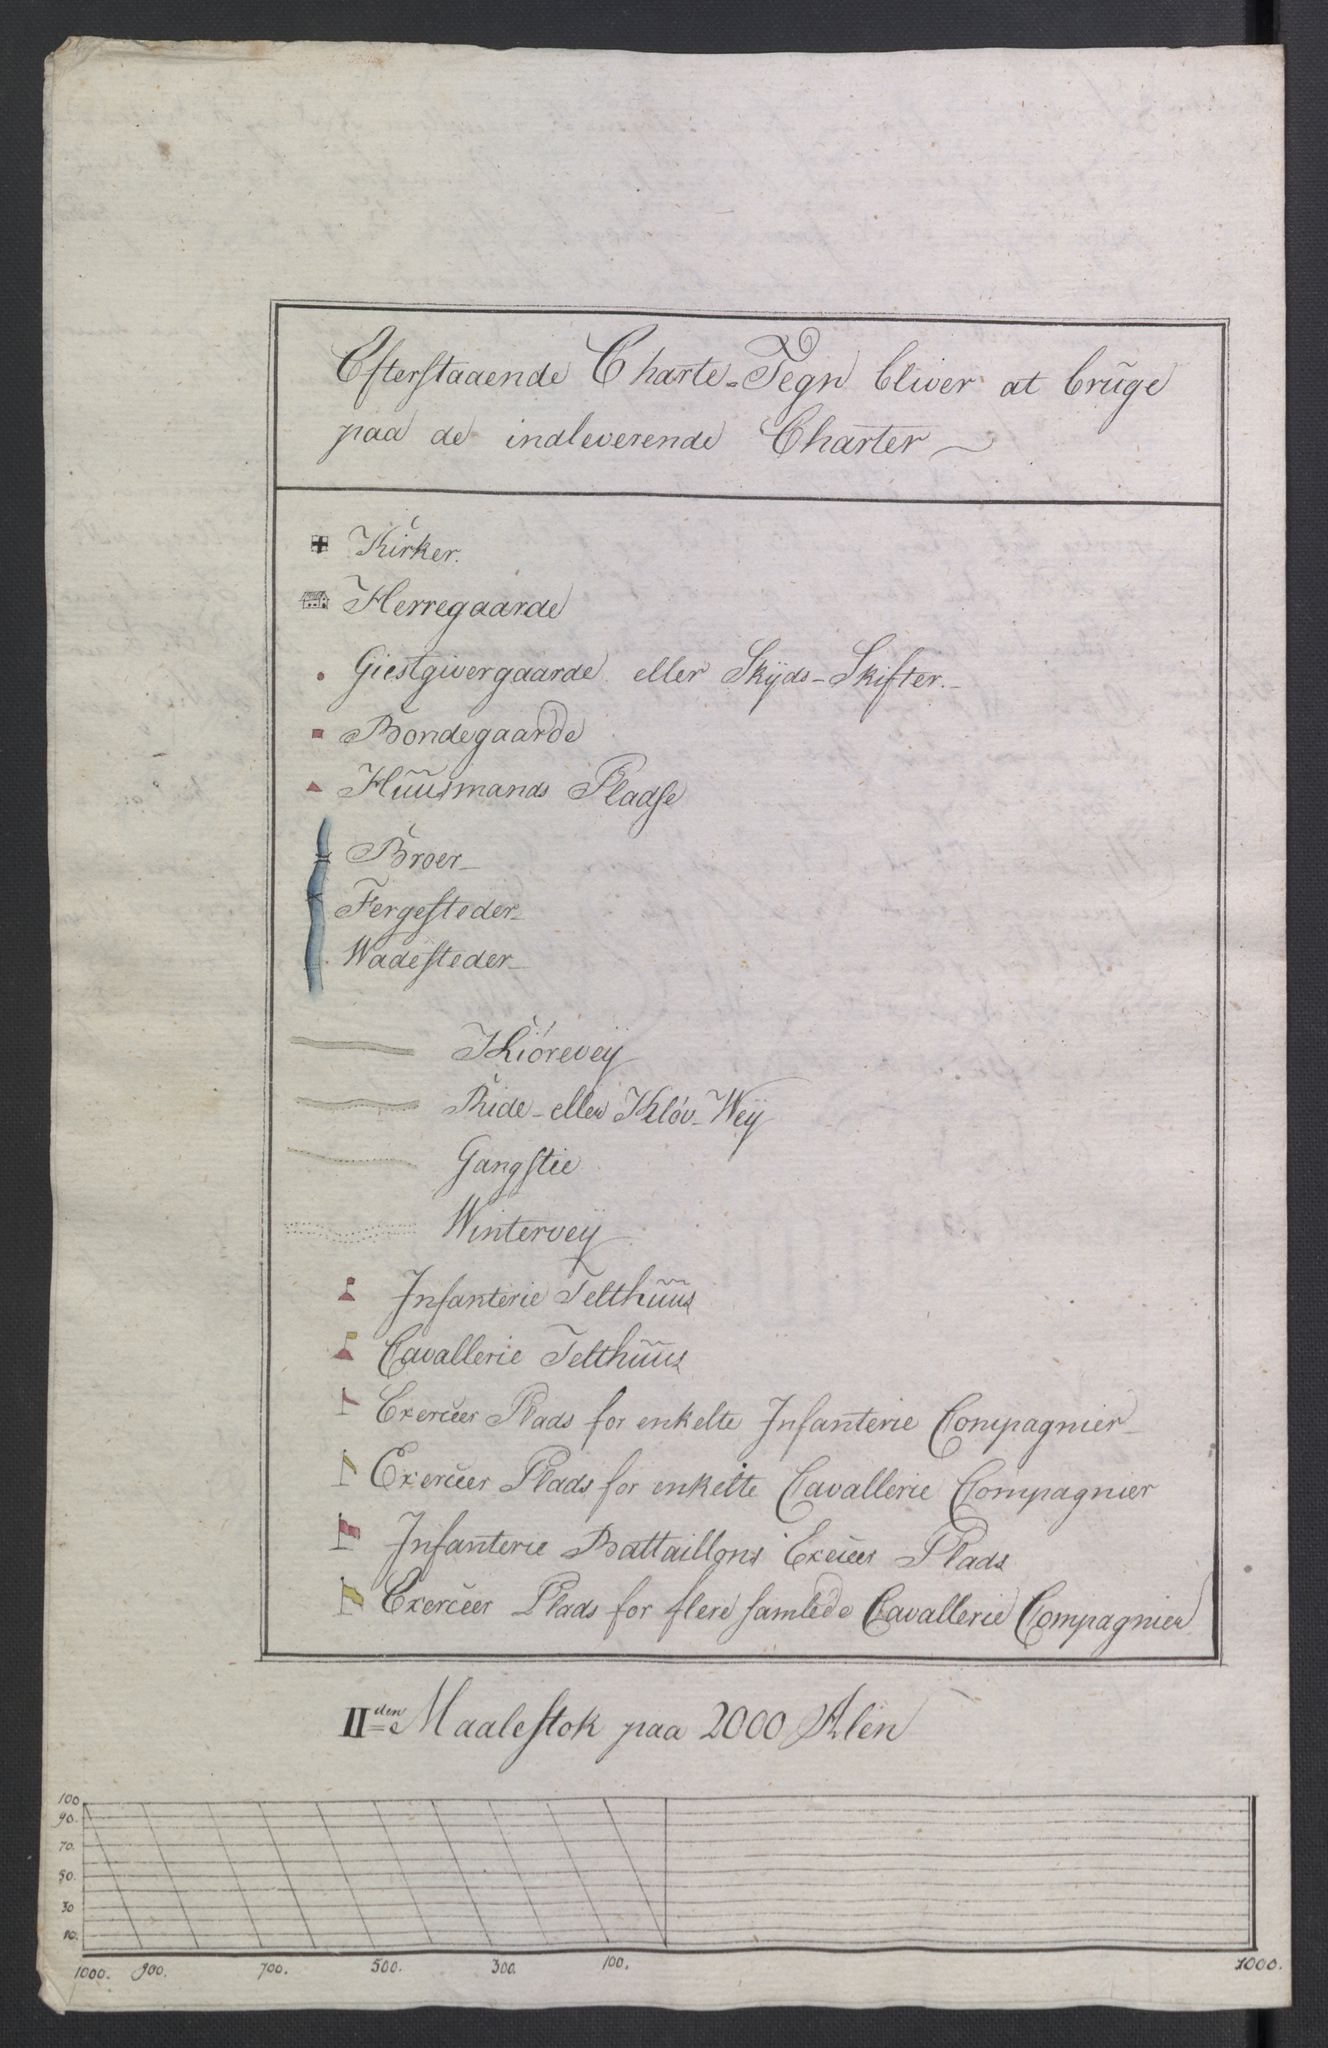 Efterstaaende Charte-Tegn bliver at brŭge
paa de indleverende Charter
Kirker.
Herregaarde
Giestgivergaarde eller Skÿds-Skifter.
Bondegaarde
Huusmands Pladse
Broer
Fergesteder
Wadesteder
Kiöreveÿ
Ride- eller Klöv-Weÿ
Gangstie
Winterveÿ
Infanterie Telthuus
Cavallerie Telthuus
Exerceer Plads for enkelte Infanterie Compagnier
Exerceer Plads for enkelte Cavallerie Compagnier
Infanterie Battaillons Exerceer Plads
Exerceer Plads for flere samlede Cavallerie Compagnier
II den Maalestok paa 2000 Alen
100
90.
70.
50.
30
10.
1000. 900. 700. 500. 300. 100. 1000.